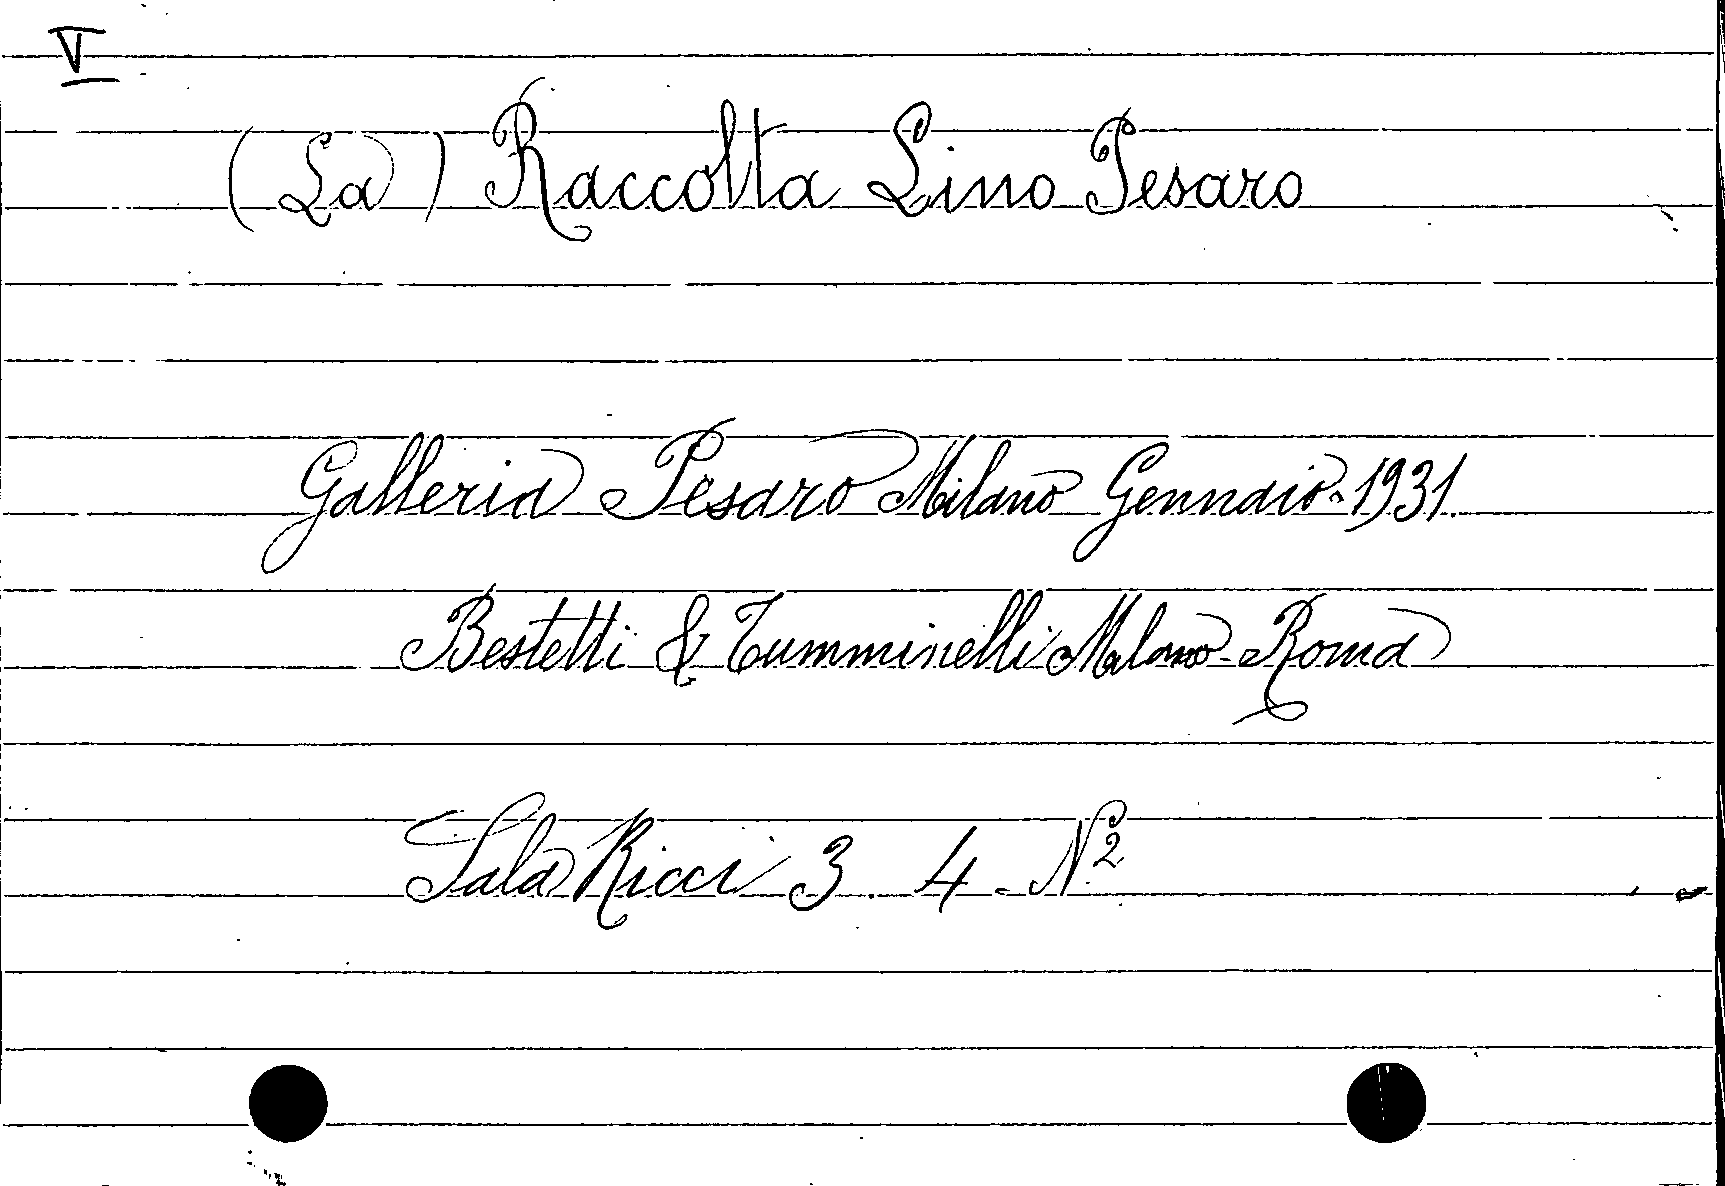 V
(La) Raccolta Lino Pesaro
Galleria Pesaro Milano Gennaio - 1931.
Bestetti & Tumminelli Milano - Roma
Sala Ricci 3. 4. N.2